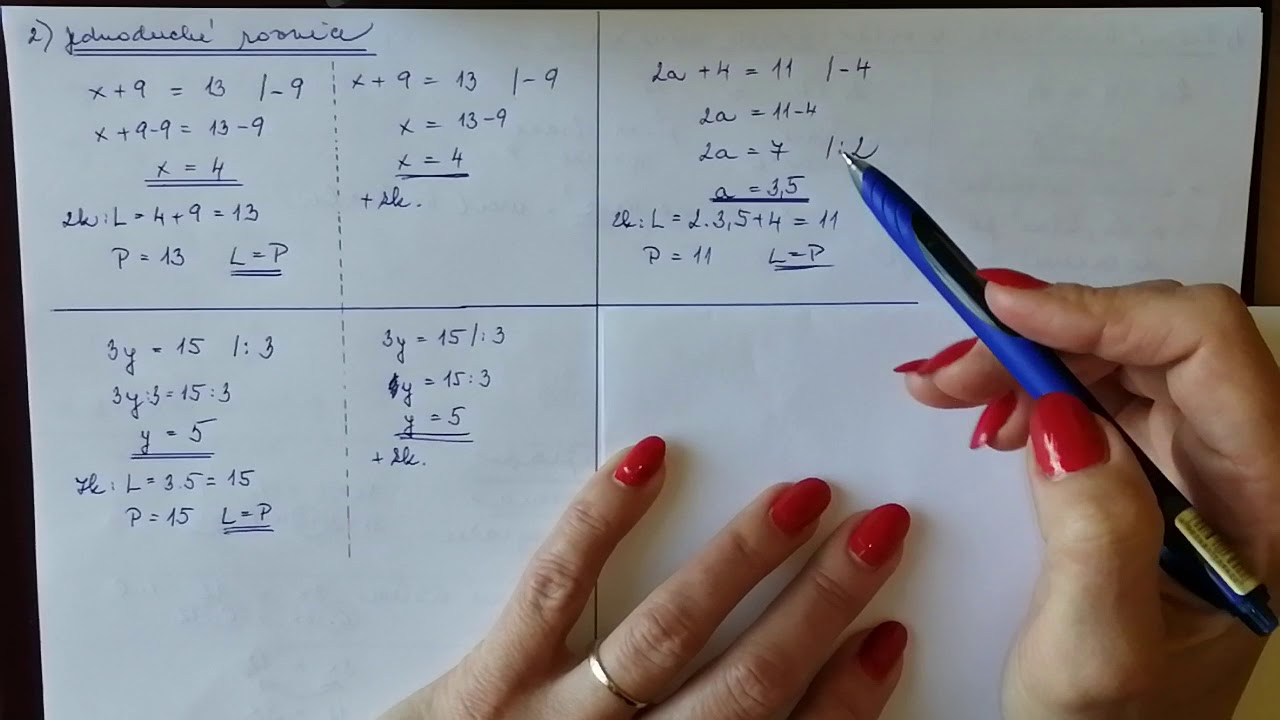 2) jednoduché rovnice
x + 9 = 13 /-9
x + 9-9 = 13-9
x = 4
zk: L = 4 + 9 = 13
P = 13 L = P
x + 9 = 13 /-9
x = 13-9
x = 4
+ zk.
2a + 4 = 11 /-4
2a = 11-4
2a = 7 /:2
a = 3,5
zk: L = 2.3,5+4 = 11
P = 11 L=P
3y = 15 /:3
3y:3 = 15:3
y = 5
zk: L = 3.5 = 15
P = 15 L = P
3y = 15 /:3
y = 15:3
y = 5
+ zk.